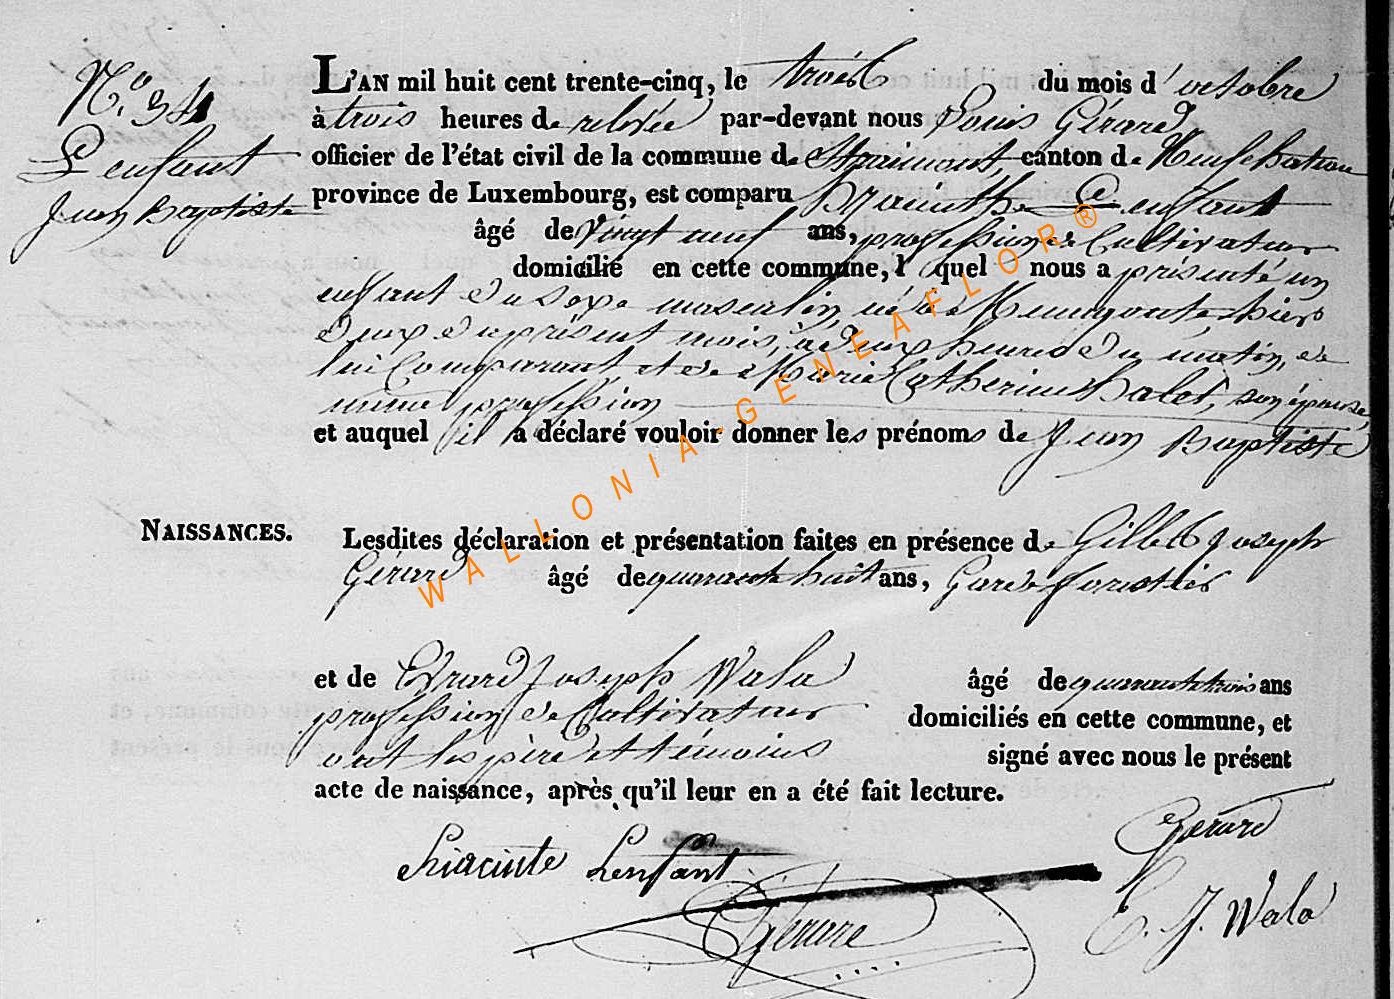 N.o 34
L'enfant
Jean Baptiste
L'AN mil huit cent trente-cinq, le trois du mois d'octobre
à trois heures de relevée par-devant nous Louis Gérard,
officier de l'état civil de la commune de Straimont, canton de Neufchateau
province de Luxembourg, est comparu hyacinthe Lenfant
âgé de vingt neuf ans, profession de Cultivateur
domicilié en cette commune, lequel nous a présenté un
enfant du sexe masculin, né à hier
deux du présent mois, à deux heures du matin, de
lui Comparant et de Marie Catherine halet, son épouse,
même profession
et auquel il a déclaré vouloir donner les prénoms de Jean Baptiste
NAISSANCES.
Lesdites déclaration et présentation faites en présence de Gille Joseph
Gérard âgé de quarante huit ans, Garde forestier
et de Evrard Joseph Wala âgé de quarante trois ans
profession de Cultivateur domiciliés en cette commune, et
ont les père et témoins signé avec nous le présent
acte de naissance, après qu'il leur en a été fait lecture.
hiacinte Lenfant
Gerard
Gerare
E. J. Wala
WALLONIA-GENEAFLOR®